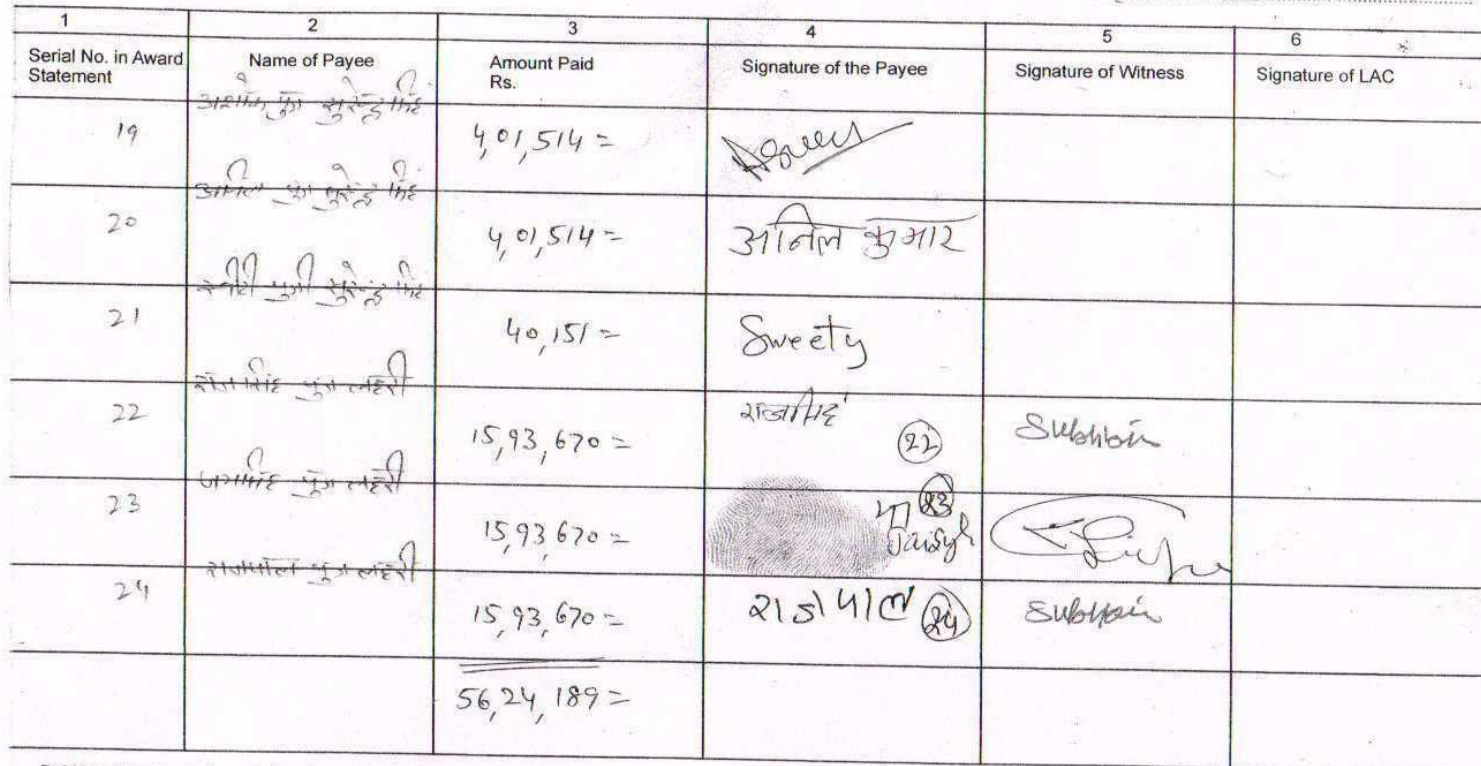 1 2 3 4 5 6
Serial No. in Award Statement Name of Payee Amount Paid Rs. Signature of the Payee Signature of Witness Signature of LAC
अशोक पुत्र सुरेन्द्र सिंह
19 4,01,514=
अनिल पुत्र सुरेन्द्र सिंह
20 4,01,514= अनिल कुमार
स्वीटी पुत्री सुरेन्द्र सिंह
21 40,151= Sweety
राजसिंह पुत्र लहरी
22 15,93,670= राजसिंह 22
पुत्र लहरी
23 15,93,670= 23
राजपाल पुत्र लहरी
24 15,93,670= राजपाल 24
56,24,189=